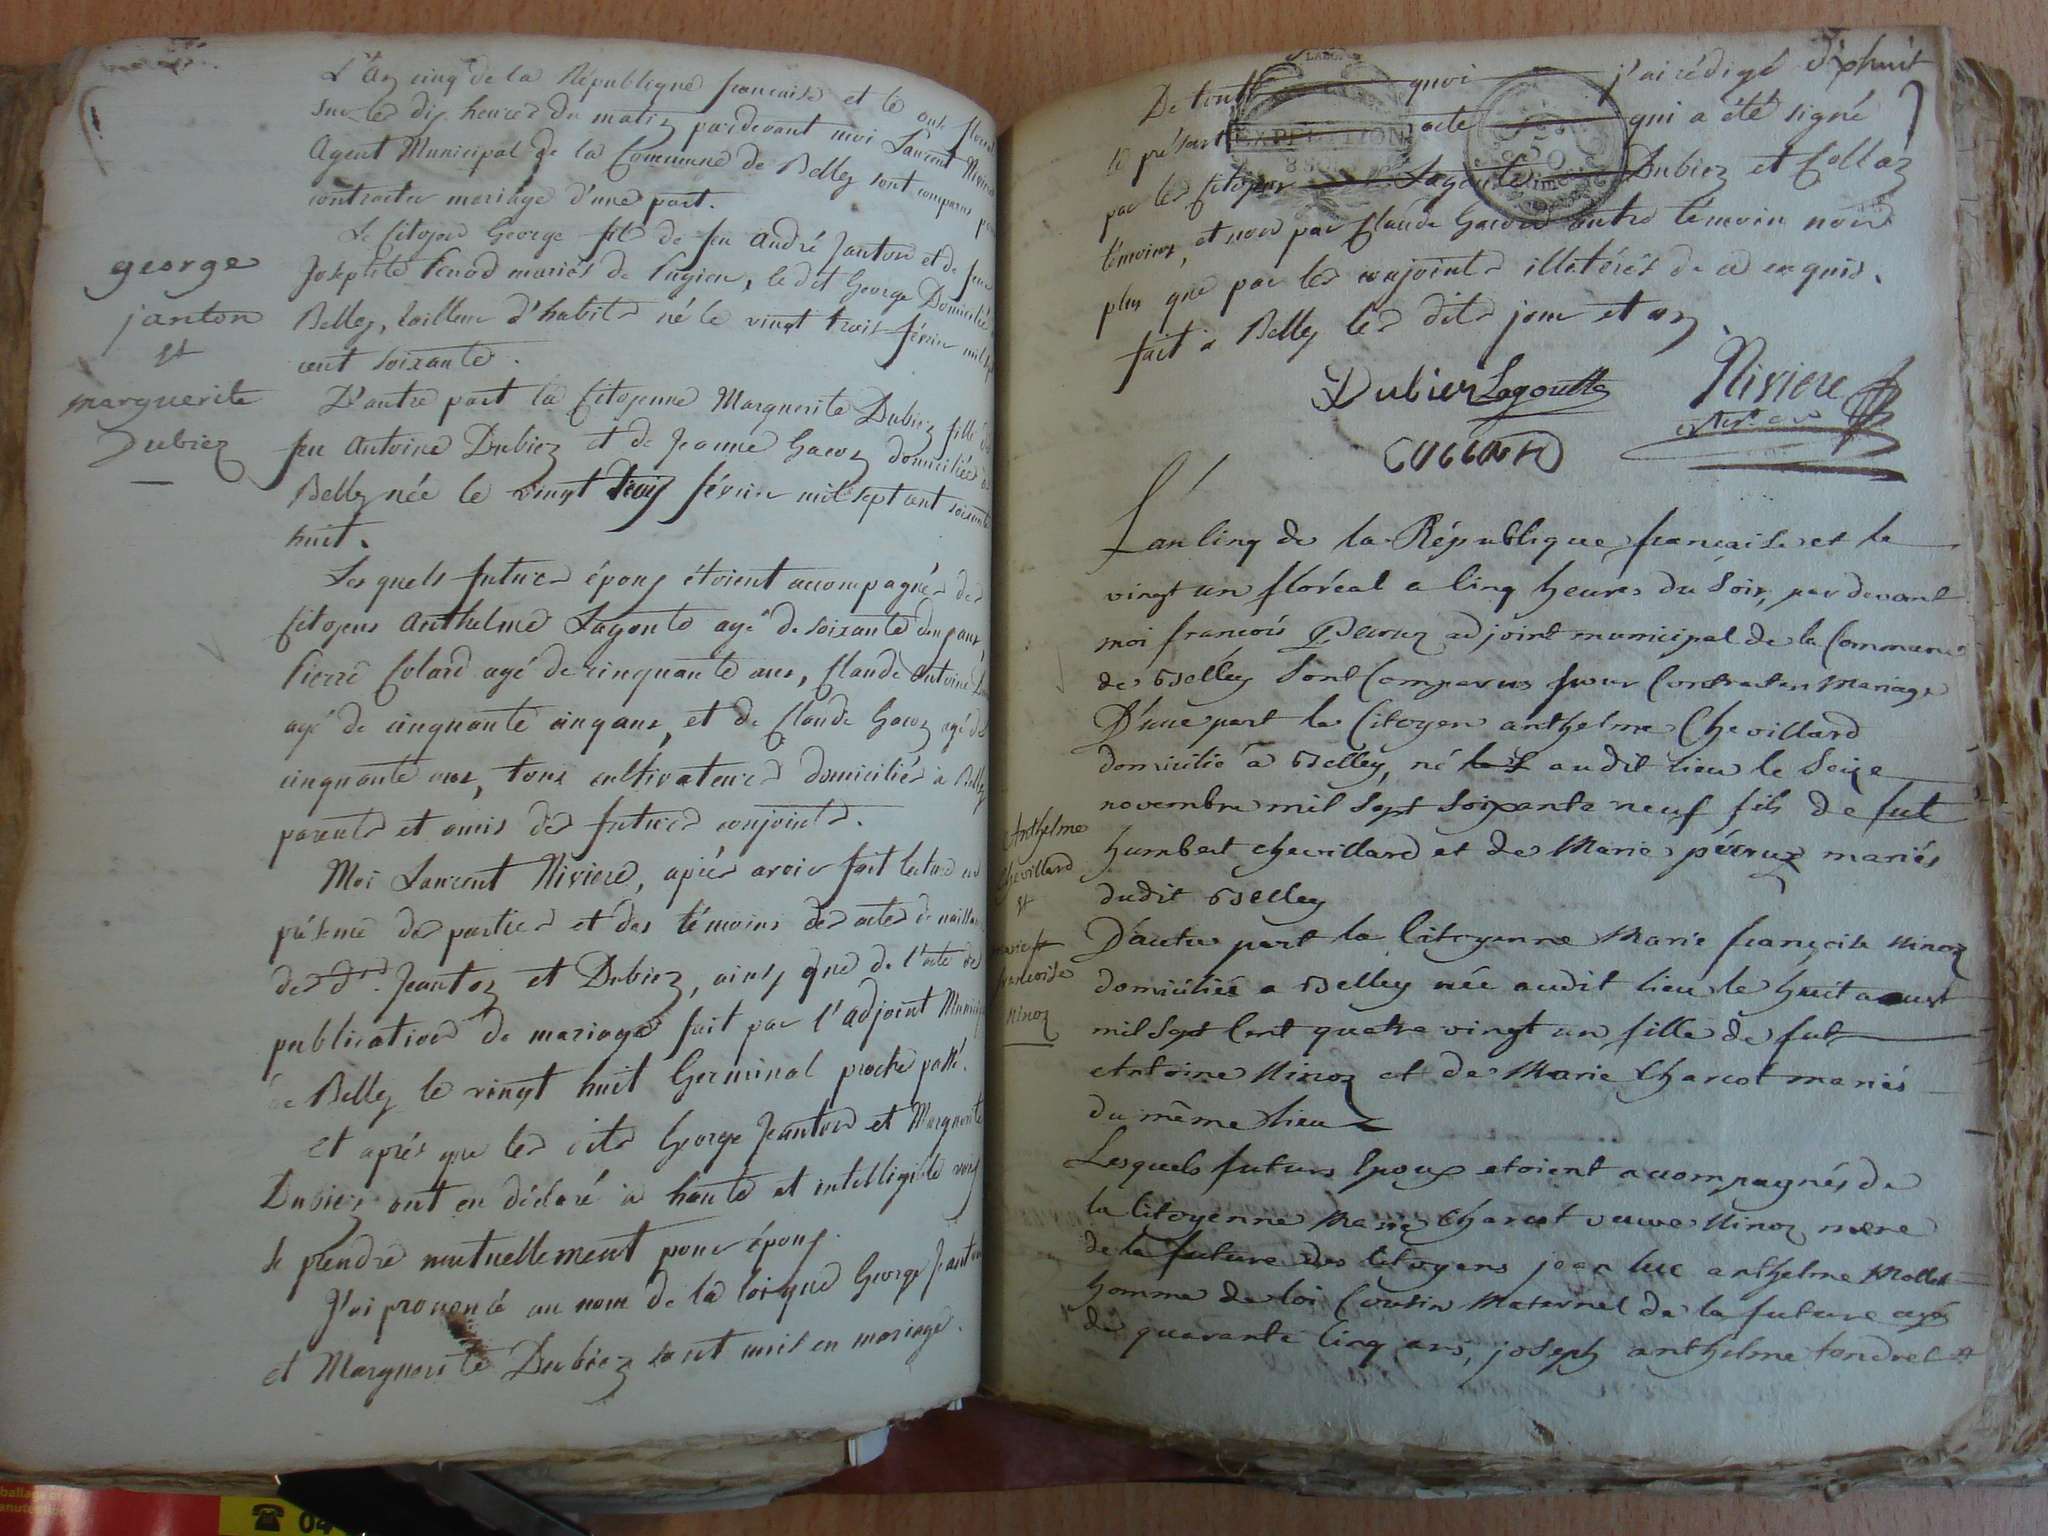 L'an cinq de la République française et le onze floreal
sur les dix heures du matin pardevant moi Laurent Riviere
Agent Municipal de la Commune de Belley sont comparus pour
contracter mariage d'une part.
Le Citoyen George fils de feu André Janton et de feue
Josephte mariés de Pugieu, le dit George Domicilié
Belley, tailleur d'habits né le vingt trois février mil sept
cent soixante.
george
janton
et
marguerite
Dubiez
D'autre part la Citoyenne Marguerite Dubiez fille de
feu Antoine Dubiez et de Jeanne Gacon domiciliée à
Belley née le vingt trois février mil sept cent soixante
huit.
Les quels futurs époux étoient accompagnés des
Citoyens Anthelme Lagoute agé de soixante cinq ans,
Pierre Colard agé de cinquante ans, Claude Antoine
agé de cinquante cinq ans, et de Claude Gacon agé de
cinquante ans, tous cultivateurs domiciliés à Belley
parents et amis des futurs conjoints.
Moi Laurent Riviere, après avoir fait lecture en
présence des parties et des témoins des actes de naissance
des dts. Jeanton et Dubiez, ainsy que de l'acte de
publication de mariage fait par l'adjoint Municipal
de Belley le vingt huit Germinal proche passé.
Et après que les dits George Jeanton et Marguerite
Dubiez ont eu déclaré à haute et intelligible voix
se prendre mutuellement pour époux.
J'ai prononcé au nom de la loi que George Janton
et Marguerite Dubiez sont unis en mariage.
De toute quoi j'ai rédigé
le présent acte qui a été signé
EXPEDITION
par les Citoyens Lagoute Dubiez et Collar
témoins, et non par Claude Gacon autre témoin non
plus que par les conjoints illetérés de ce enquis.
fait à Belley les dits jour et an.
Dubier Lagoutte Riviere
COLLARD
L'an Cinq de la République française et le
vingt un floréal a Cinq heures du Soir, par devant
moi françois adjoint municipal de la Commune
de Belley Sont Comparus pour Contracter Mariage
D'une part le Citoyen anthelme Chevillard
domicilié à Belley, né audit lieu le Seize
novembre mil Sept Soixante neuf fils de fut
humbert chevillard et de Marie péroux mariés
dudit Belley
Anthelme
Chevillard
et
marie
francoise
Ninoz
D'autre part la Citoyenne Marie françoise Ninoz
domiciliée a Belley née audit lieu le huit aoust
mil Sept Cent quatre vingt un fille de fut
Antoine Ninoz et de Marie Charcot mariés
du même lieu
Lesquels futurs Epoux etoient accompagnés de
la Citoyenne Marie Charcot veuve Ninoz mere
de la future des Citoyens jean luc anthelme Mollet
homme de loi Cousin Maternel de la future agé
de quarante Cinq ans, joseph anthelme tendret